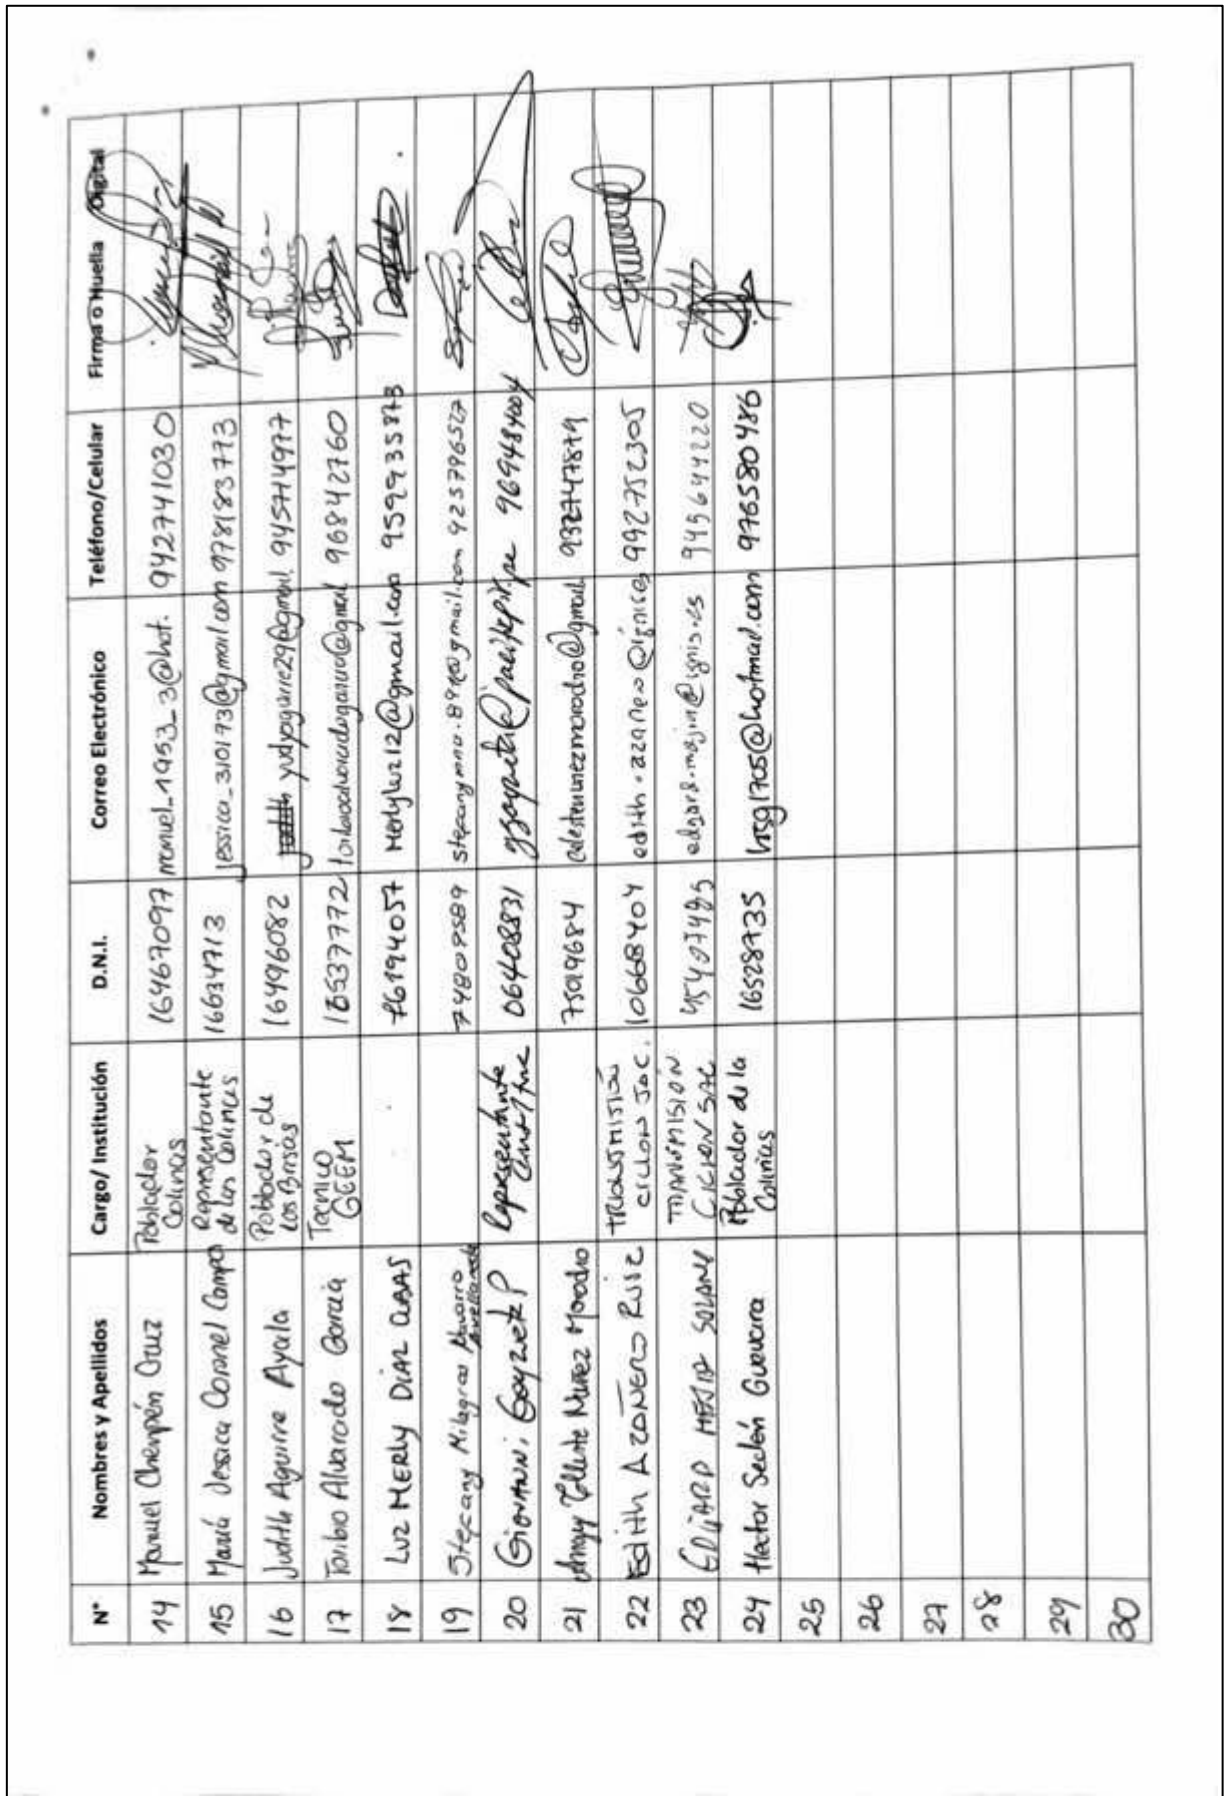 N° Nombres y Apellidos Cargo/ Institución D.N.I. Correo Electrónico Teléfono/Celular Firma o Huella Digital
14 Manuel Chenpén Cruz Poblador Colinas 16467097 manuel_1953_3@hot. 942741030
15 María Jessica Coronel Campos Representante de las Colinas 16634713 jessica_310193@gmail.com 978183773
16 Judith Aguirre Ayala Poblador de Las Brisas 16496082 yudyaguirre29@gmail. 945714977
17 Toribio Alvarado Garcia Tecnico GEEM 16537772 968427760
18 Luz MERLy DíAZ CUBAS 76194057 Merlyluz12@gmail.com 959935873
19 Stefany Milagros Navarro 74809589 925796527
20 GiovANNi GoyzuetA P Representante 06408831 969484004
21 Nuñez 75019684 932747879
22 Edith AZAÑERO Ruiz TRANSMISIÓN CICLON SAC. 10668404 992752305
23 EDGARD MEJIA SOLANO TRANSMISIÓN CICLON SAC 45407485 949644220
24 Hector Seclén Guevara Poblador de la Colinas 16528735 hsg1705@hotmail.com 976580486
25
26
27
28
29
30